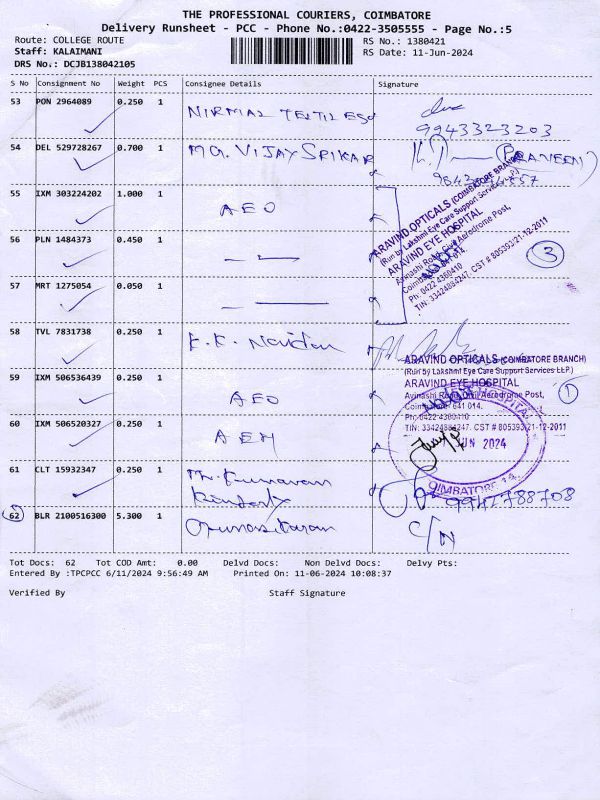 THE PROFESSIONAL COURIERS, COIMBATORE
Delivery Runsheet - PCC - Phone No.:0422-3505555 - Page No.:5
Route: COLLEGE ROUTE
RS No.: 1380421
Staff: KALAIMANI
RS Date: 11-Jun-2024
DRS No.: DCJB138042105
S No Consignment No Weight PCS Consignee Details Signature
53 PON 2964089 0.250 1
9943323203
54 DEL 529728267 0.700 1 MG. VIJAY SRIKAR (PRAVEEN)
55 IXM 303224202 1.000 1 AEO
ARAVIND OPTICALS (COIMBATORE BRANCH)
(Run by Lakshmi Eye Care Support Services LLP.)
ARAVIND EYE HOSPITAL
Avinashi Road, Civil Aerodrome Post,
Coimbatore 641 014.
Ph: 0422 4360410
TIN: 33424884247, CST # 805393/21-12-2011
3
56 PLN 1484373 0.450 1
57 MRT 1275054 0.050 1
58 TVL 7831738 0.250 1 K.K.
ARAVIND OPTICALS (COIMBATORE BRANCH)
(Run by Lakshmi Eye Care Support Services LLP.)
ARAVIND EYE HOSPITAL
Avinashi Road, Civil Aerodrome Post,
Coimbatore 641 014.
Ph: 0422 4360410
TIN: 33424884247, CST # 805393/21-12-2011
1
59 IXM 506536439 0.250 1 AEO
60 IXM 506520327 0.250 1 AEH
HOSPITAL
JUN 2024
COIMBATORE-14
61 CLT 15932347 0.250 1
9941788708
62 BLR 2100516300 5.300 1
C/N
Tot Docs: 62 Tot COD Amt: 0.00 Delvd Docs: Non Delvd Docs: Delvy Pts:
Entered By :TPCPCC 6/11/2024 9:56:49 AM Printed On: 11-06-2024 10:08:37
Verified By Staff Signature